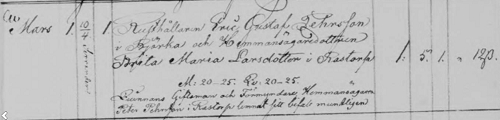 Mars 1. 10/4 1. Rusthållaren Eric Gustaf Pehrsson
i Bjärka och Hemmansägaredottren
Greta Maria Larsdotter i Kästorp 1: 5. 1. = 12β.
M: 20-25. Qv. 20-25.
Qvinnans Giftoman och Förmyndare Hemmansägaren
Peter Pehrsson i Kästorp lemnat sitt bifall muntligen